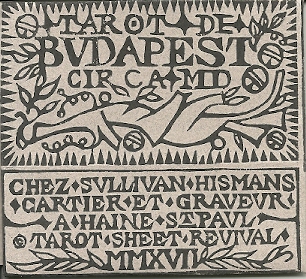 TAROT DE
BVDAPEST
CIRCA MD
CHEZ SVLLIVAN HISMANS
CARTIER ET GRAVEVR
A HAINE ST PAVL
© TAROT SHEET REVIVAL
MMXVII